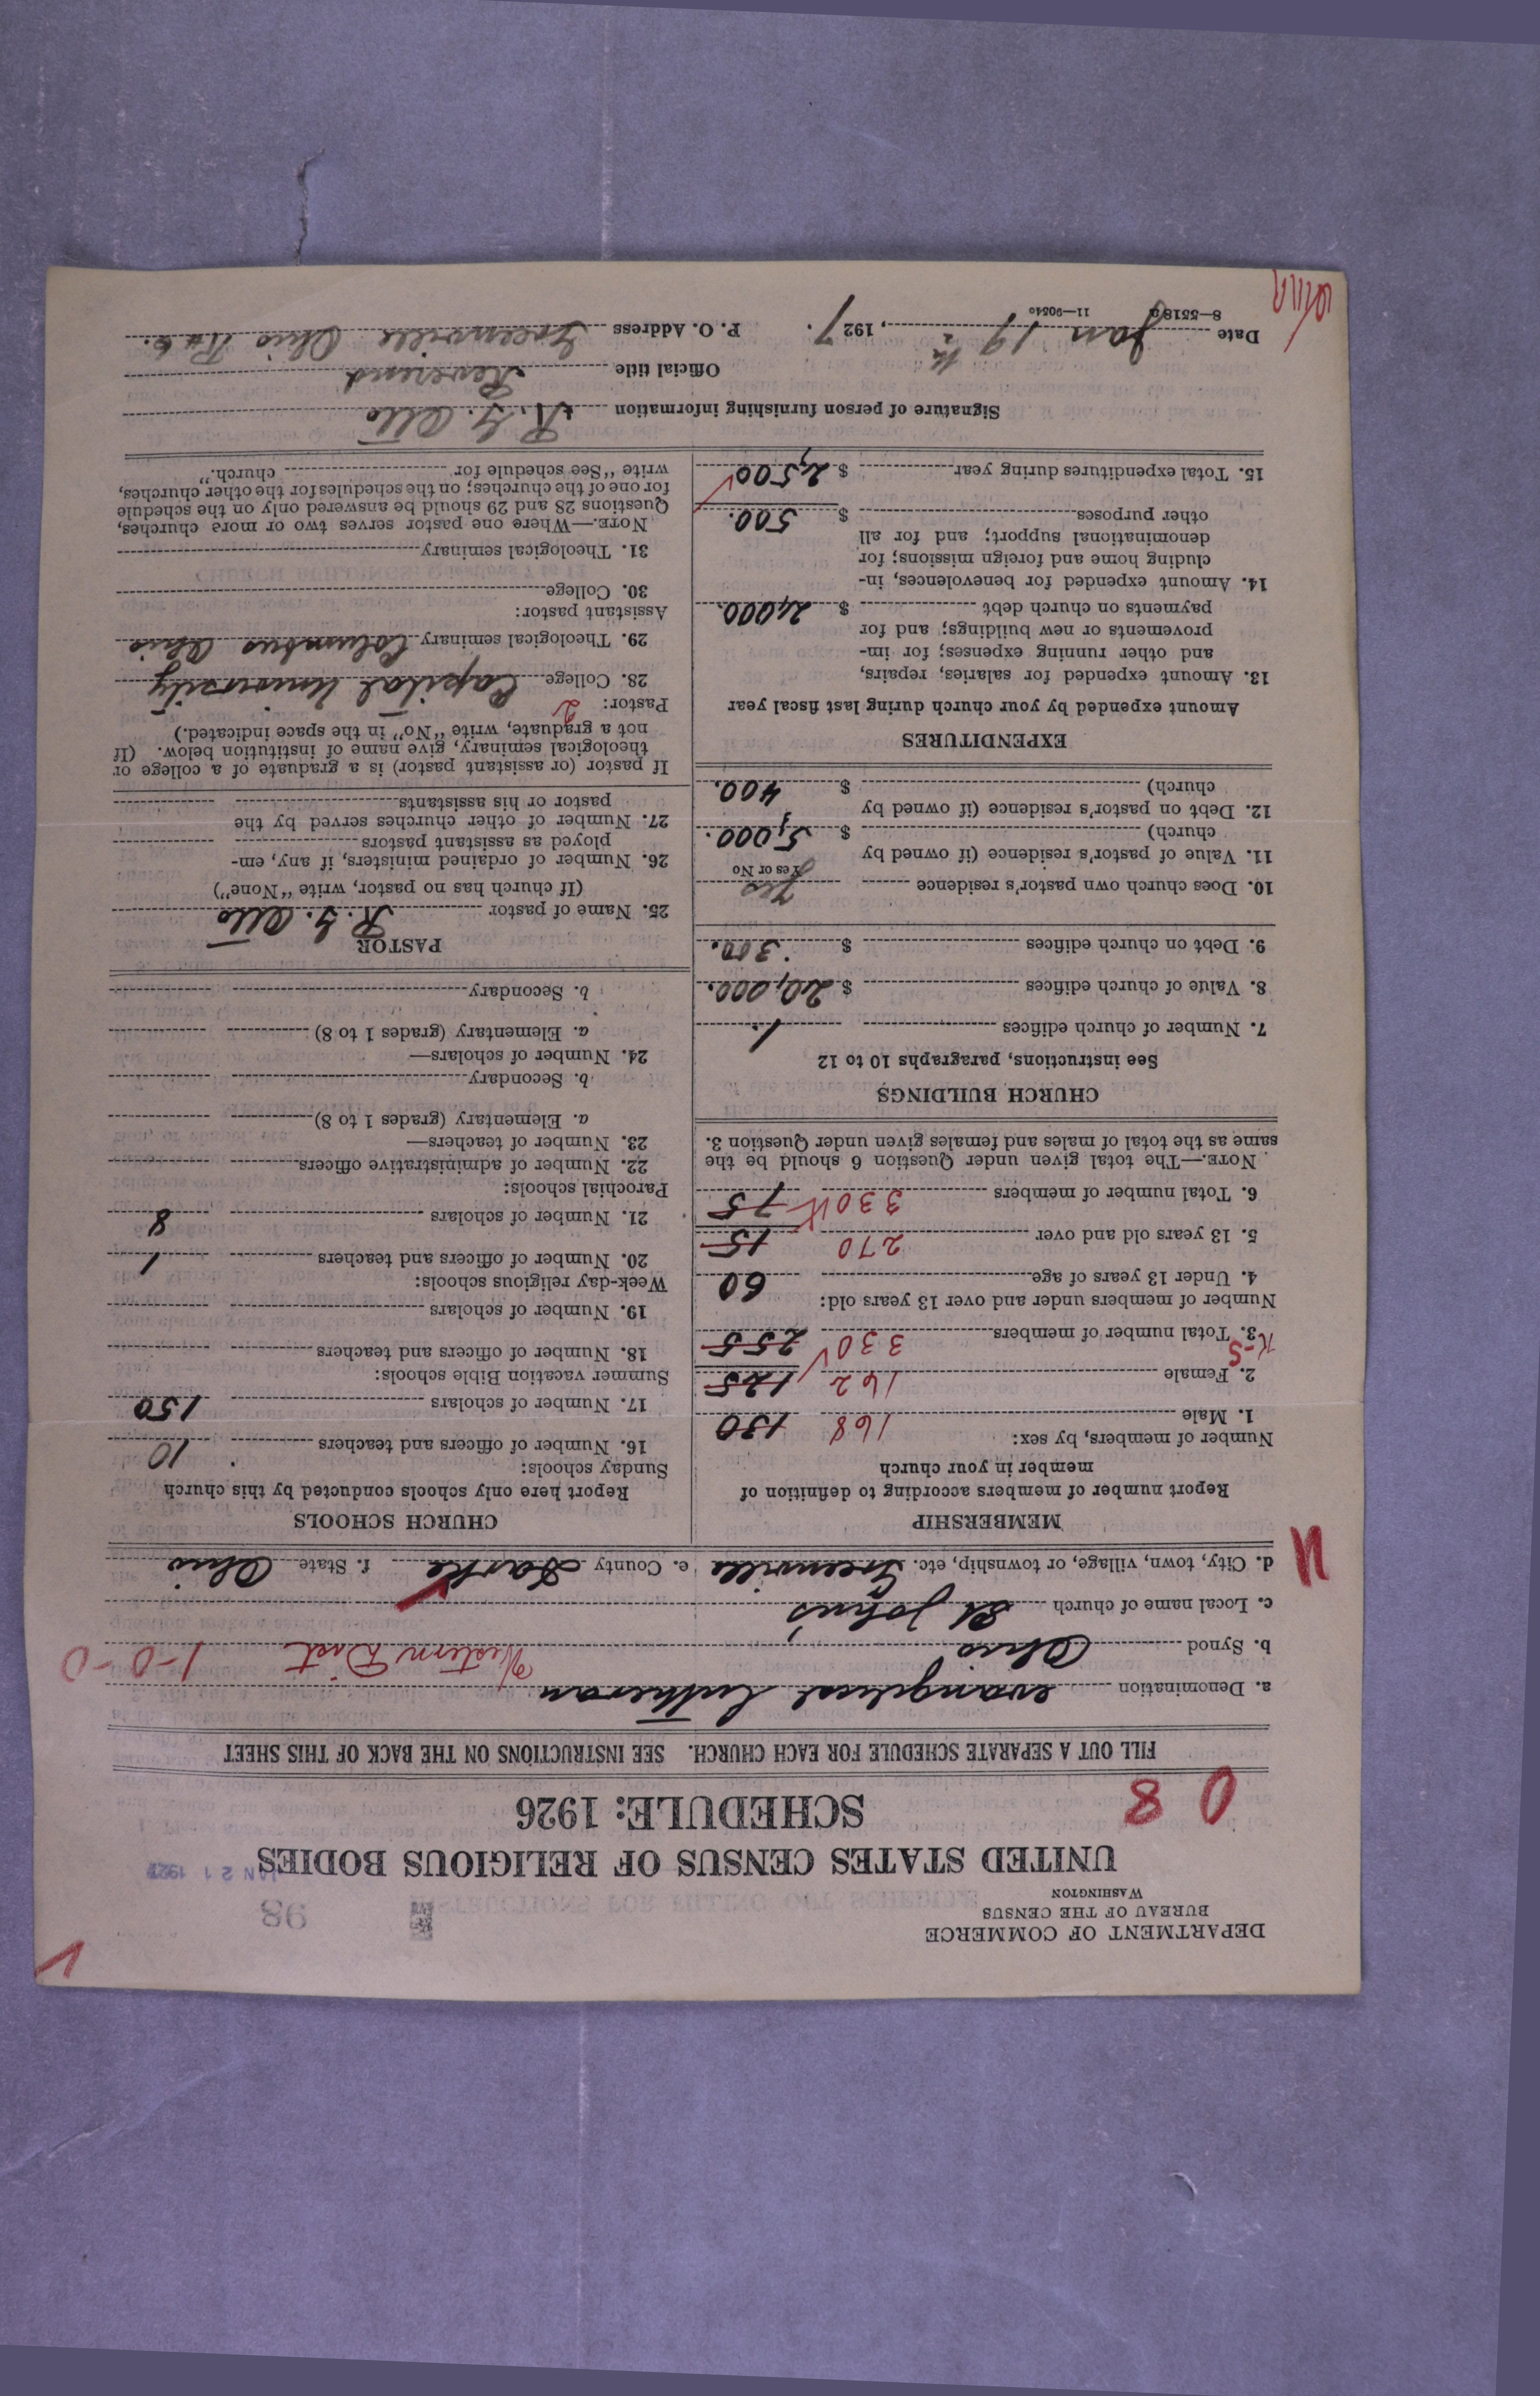 DEPARTMENT OF COMMERCE
BUREAU OF THE CENSUS
WASHINGTON
98
JAN 21 1927
UNITED STATES CENSUS OF RELIGIOUS BODIES
SCHEDULE: 1926
0 8
FILL OUT A SEPARATE SCHEDULE FOR EACH CHURCH. SEE INSTRUCTIONS ON THE BACK OF THIS SHEET
a. Denomination evangelical Lutheran
b. Synod Ohio Western Dist 1-0-0
c. Local name of church St Johns
d. City, town, village, or township, etc. Greenville e. County Darke f. State Ohio
MEMBERSHIP
Report number of members according to definition of
member in your church
Number of members, by sex:
1. Male 168 130
2. Female 162 125
3. Total number of members 330 255
Number of members under and over 13 years old:
4. Under 13 years of age 60
5. 13 years old and over 270 15
6. Total number of members 330 75
NOTE.—The total given under Question 6 should be the
same as the total of males and females given under Question 3.
CHURCH BUILDINGS
See instructions, paragraphs 10 to 12
7. Number of church edifices 1
8. Value of church edifices $ 20,000.
9. Debt on church edifices $ 300.
10. Does church own pastor's residence Yes
Yes or No
11. Value of pastor's residence (if owned by
church) $ 5,000.
12. Debt on pastor's residence (if owned by
church) $ 400.
EXPENDITURES
Amount expended by your church during last fiscal year
13. Amount expended for salaries, repairs,
and other running expenses; for im-
provements or new buildings; and for
payments on church debt $ 2,000.
14. Amount expended for benevolences, in-
cluding home and foreign missions; for
denominational support; and for all
other purposes $ 500.
15. Total expenditures during year $ 2,500
CHURCH SCHOOLS
Report here only schools conducted by this church
Sunday schools:
16. Number of officers and teachers 10
17. Number of scholars 150
Summer vacation Bible schools:
18. Number of officers and teachers
19. Number of scholars
Week-day religious schools:
20. Number of officers and teachers 1
21. Number of scholars 8
Parochial schools:
22. Number of administrative officers
23. Number of teachers—
a. Elementary (grades 1 to 8)
b. Secondary
24. Number of scholars—
a. Elementary (grades 1 to 8)
b. Secondary
PASTOR
25. Name of pastor R. G. Otto
(If church has no pastor, write "None")
26. Number of ordained ministers, if any, em-
ployed as assistant pastors
27. Number of other churches served by the
pastor or his assistants
If pastor (or assistant pastor) is a graduate of a college or
theological seminary, give name of institution below. (If
not a graduate, write "No" in the space indicated.)
Pastor: 2
28. College Capital University
29. Theological seminary Columbus Ohio
Assistant pastor:
30. College
31. Theological seminary
NOTE.—Where one pastor serves two or more churches,
Questions 28 and 29 should be answered only on the schedule
for one of the churches; on the schedules for the other churches,
write "See schedule for church."
Signature of person furnishing information R. G. Otto
Official title Reverend
Date Jan 19th, 1927. P. O. Address Greenville Ohio R#6.
8—5518a 11—9054a